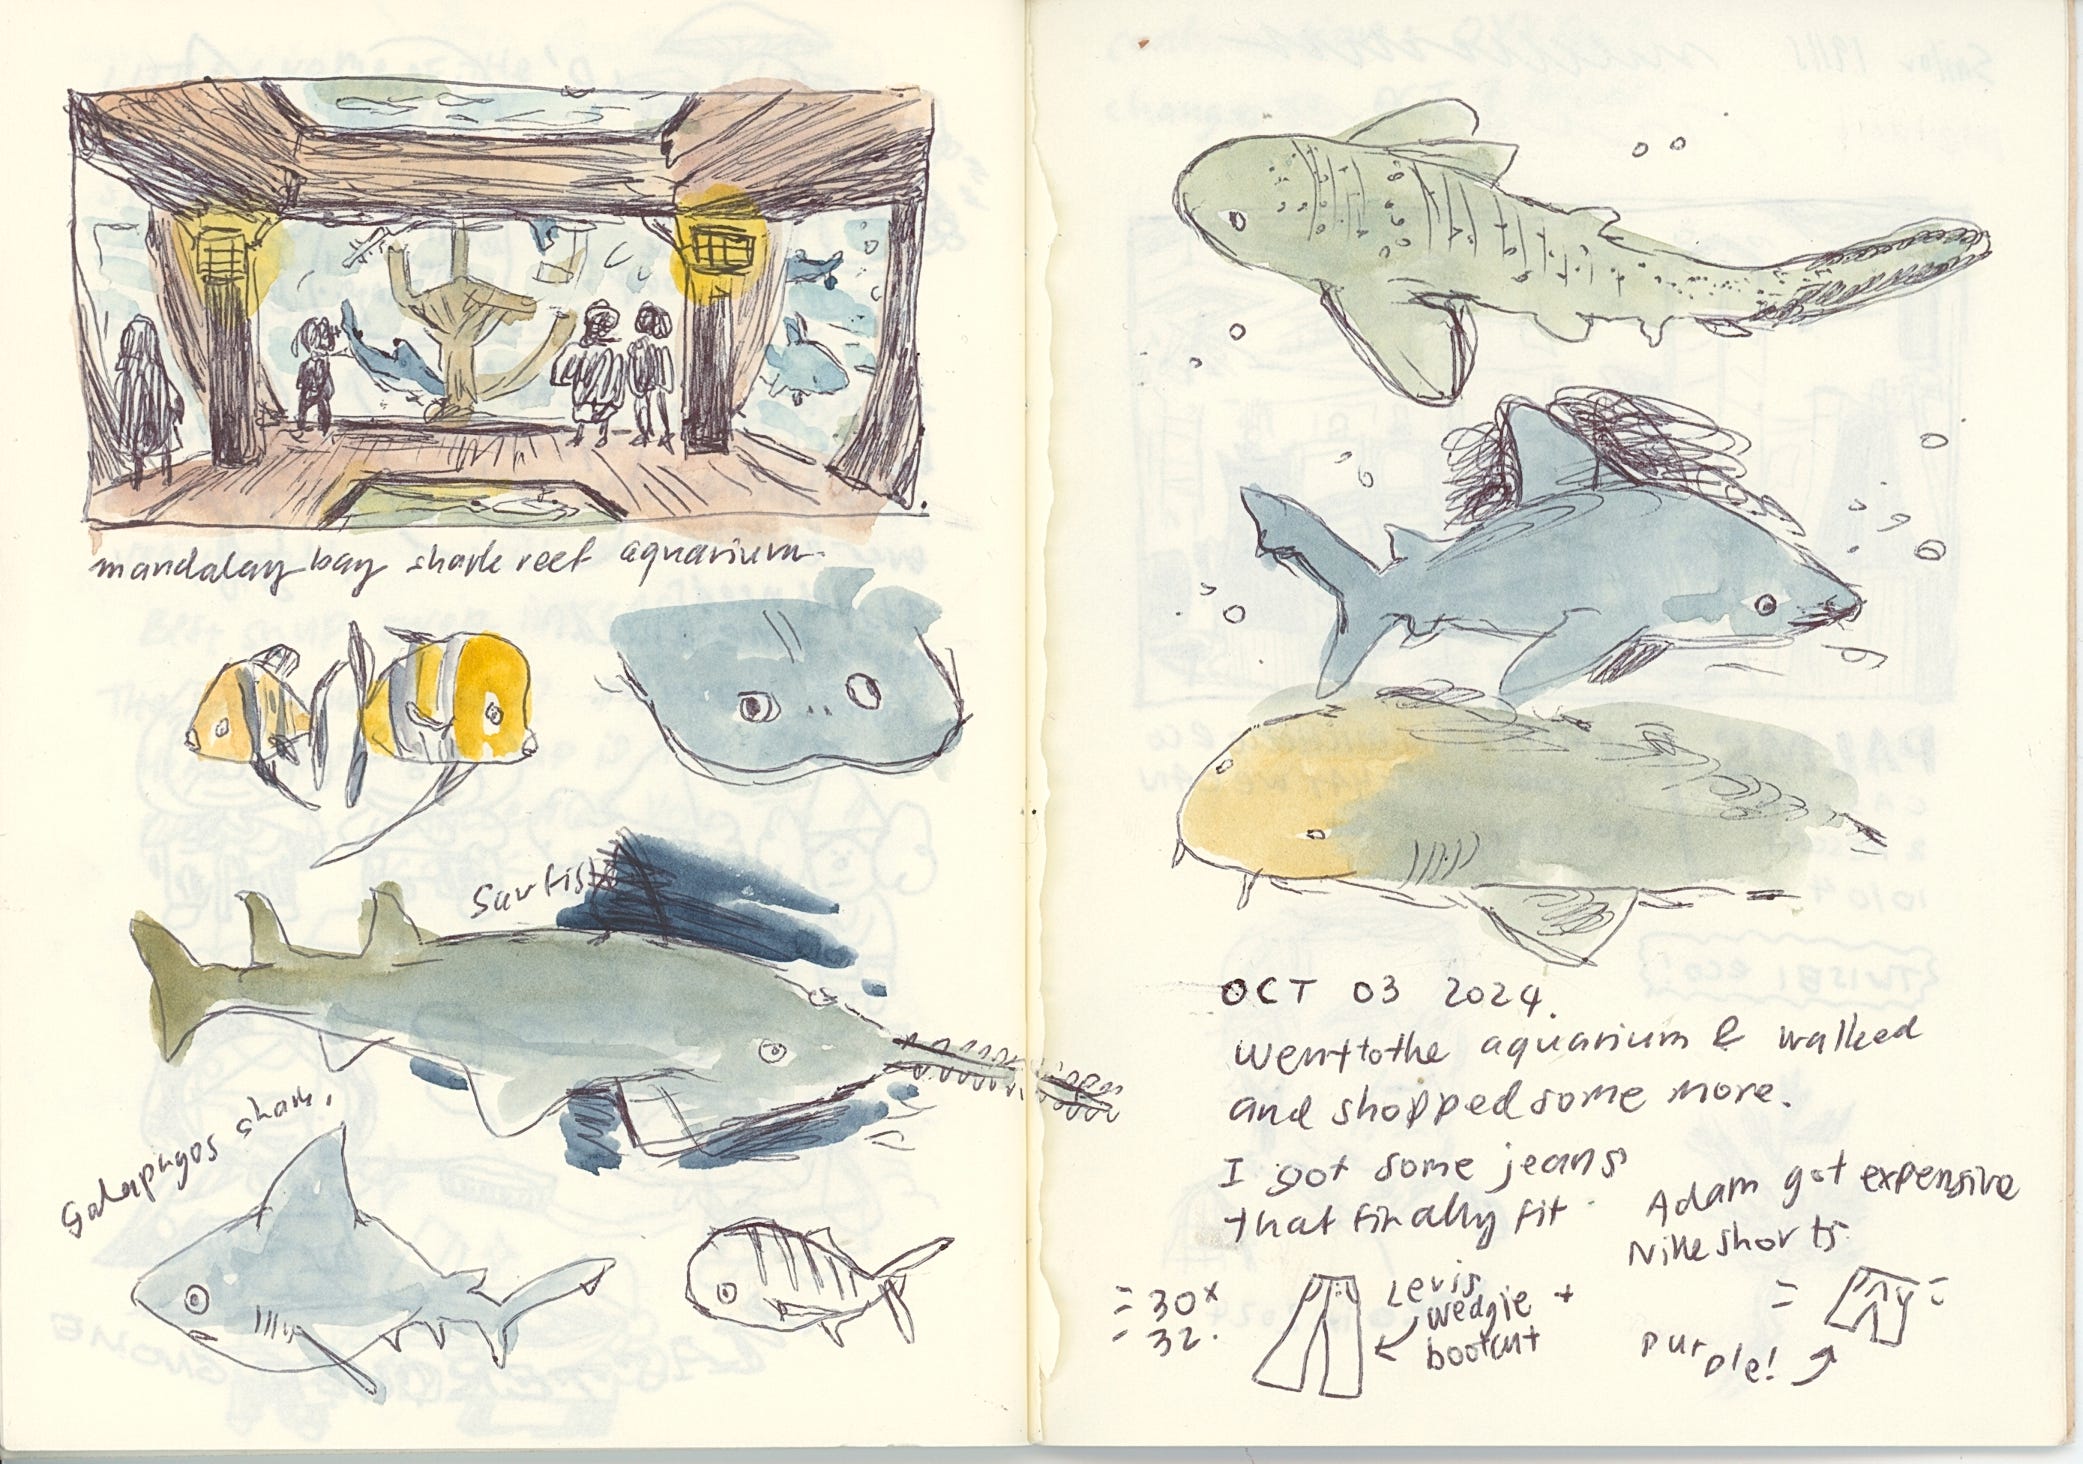 mandalay bay shark reef aquarium.
Sawfish
Galapagos shark.
OCT 03 2024.
Went to the aquarium & walked
and shopped some more.
I got some jeans
that finally fit
= 30x
= 32.
Levis
wedgie +
bootcut
Adam got expensive
Nike shorts
purple!